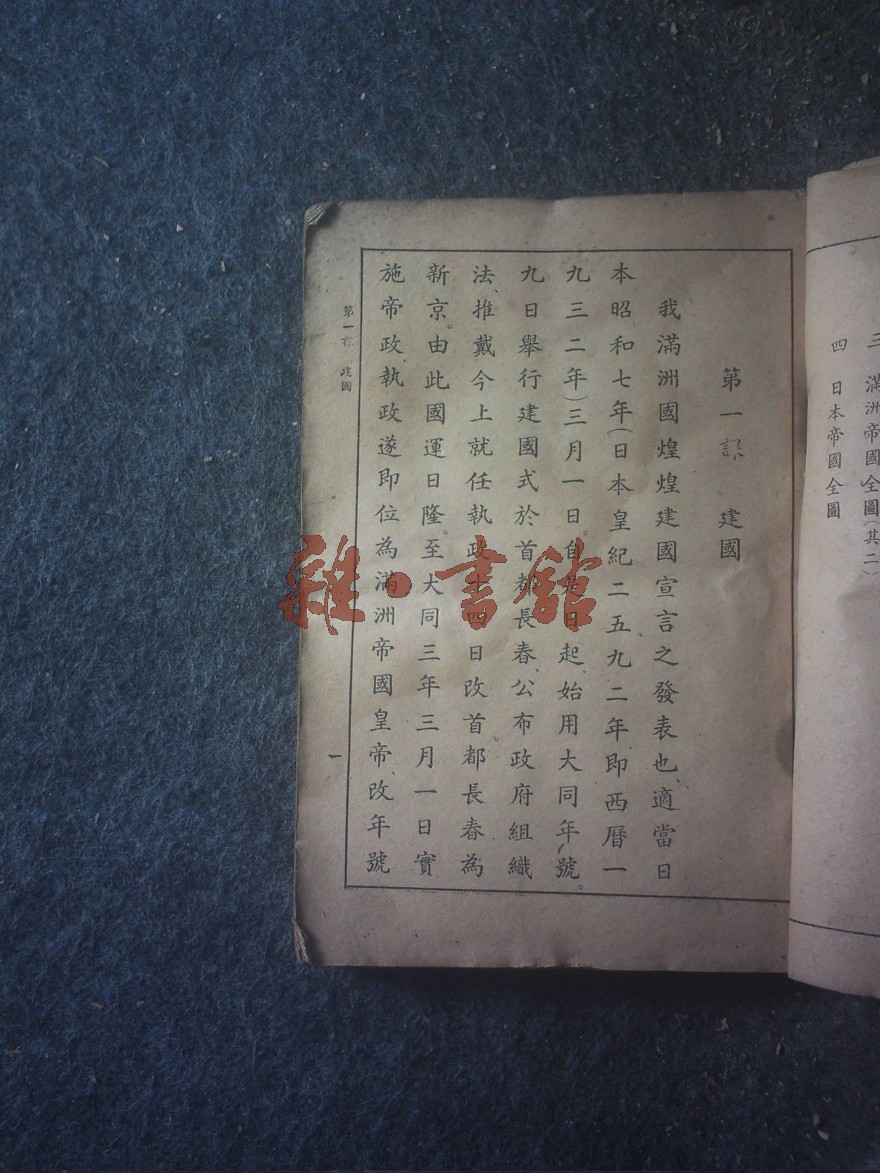 三 滿洲帝國全圖(其二)
四 日本帝國全圖
第一課 建國
我滿洲國煌煌建國宣言之發表也、適當日
本昭和七年(日本皇紀二五九二年、即西曆一
九三二年)三月一日。自是日起、始用大同年號。
九日舉行建國式於首都長春、公布政府組織
法、推戴今上就任執政。十四日改首都長春為
新京。由此國運日隆。至大同三年三月一日實
施帝政、執政遂即位為滿洲帝國皇帝、改年號
第一課 建國
一
雜·書館